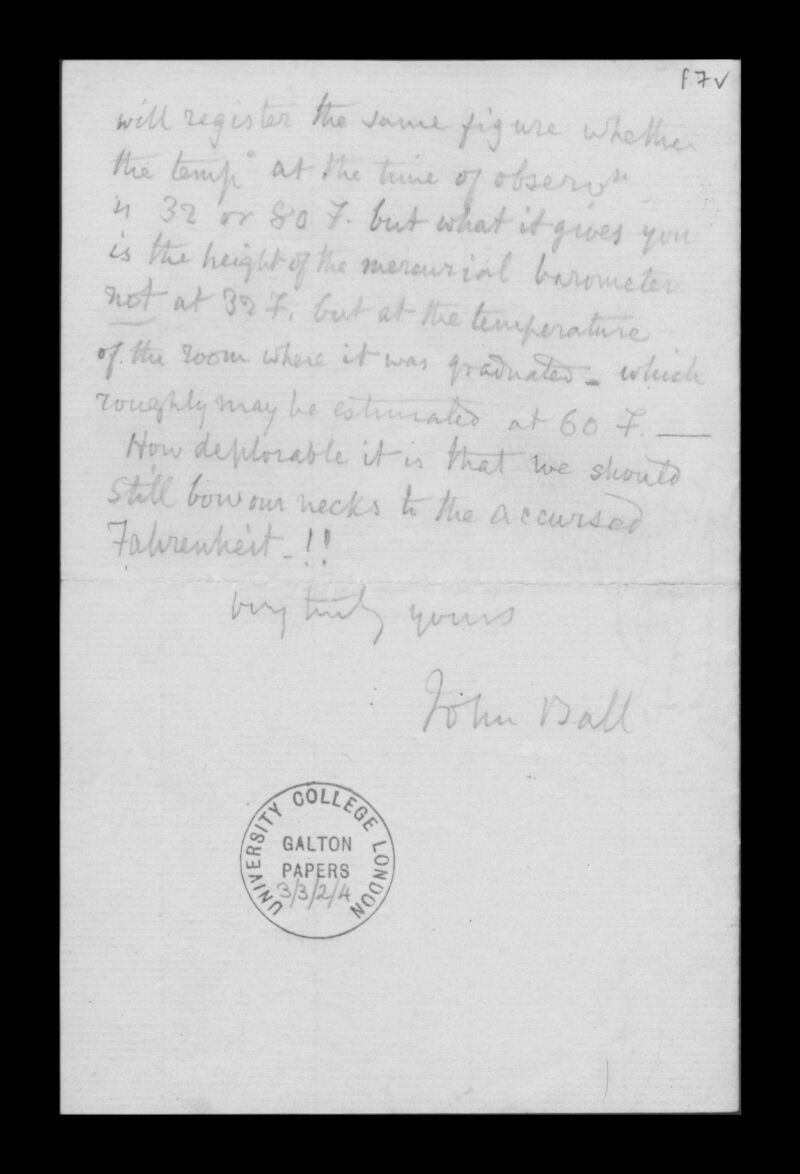 f 7 v
will register the same figure whether
the temp° at the time of observn
is 32 or 80 F. but what it gives you
is the height of the mercurial barometer
not at 32 F. but at the temperature
of the room where it was graduated - which
roughly may be estimated at 60 F. —
How deplorable it is that we should
still bow our necks to the accursed
Fahrenheit - !!
very truly yours
John Ball
UNIVERSITY COLLEGE LONDON
GALTON
PAPERS
3/3/2/4